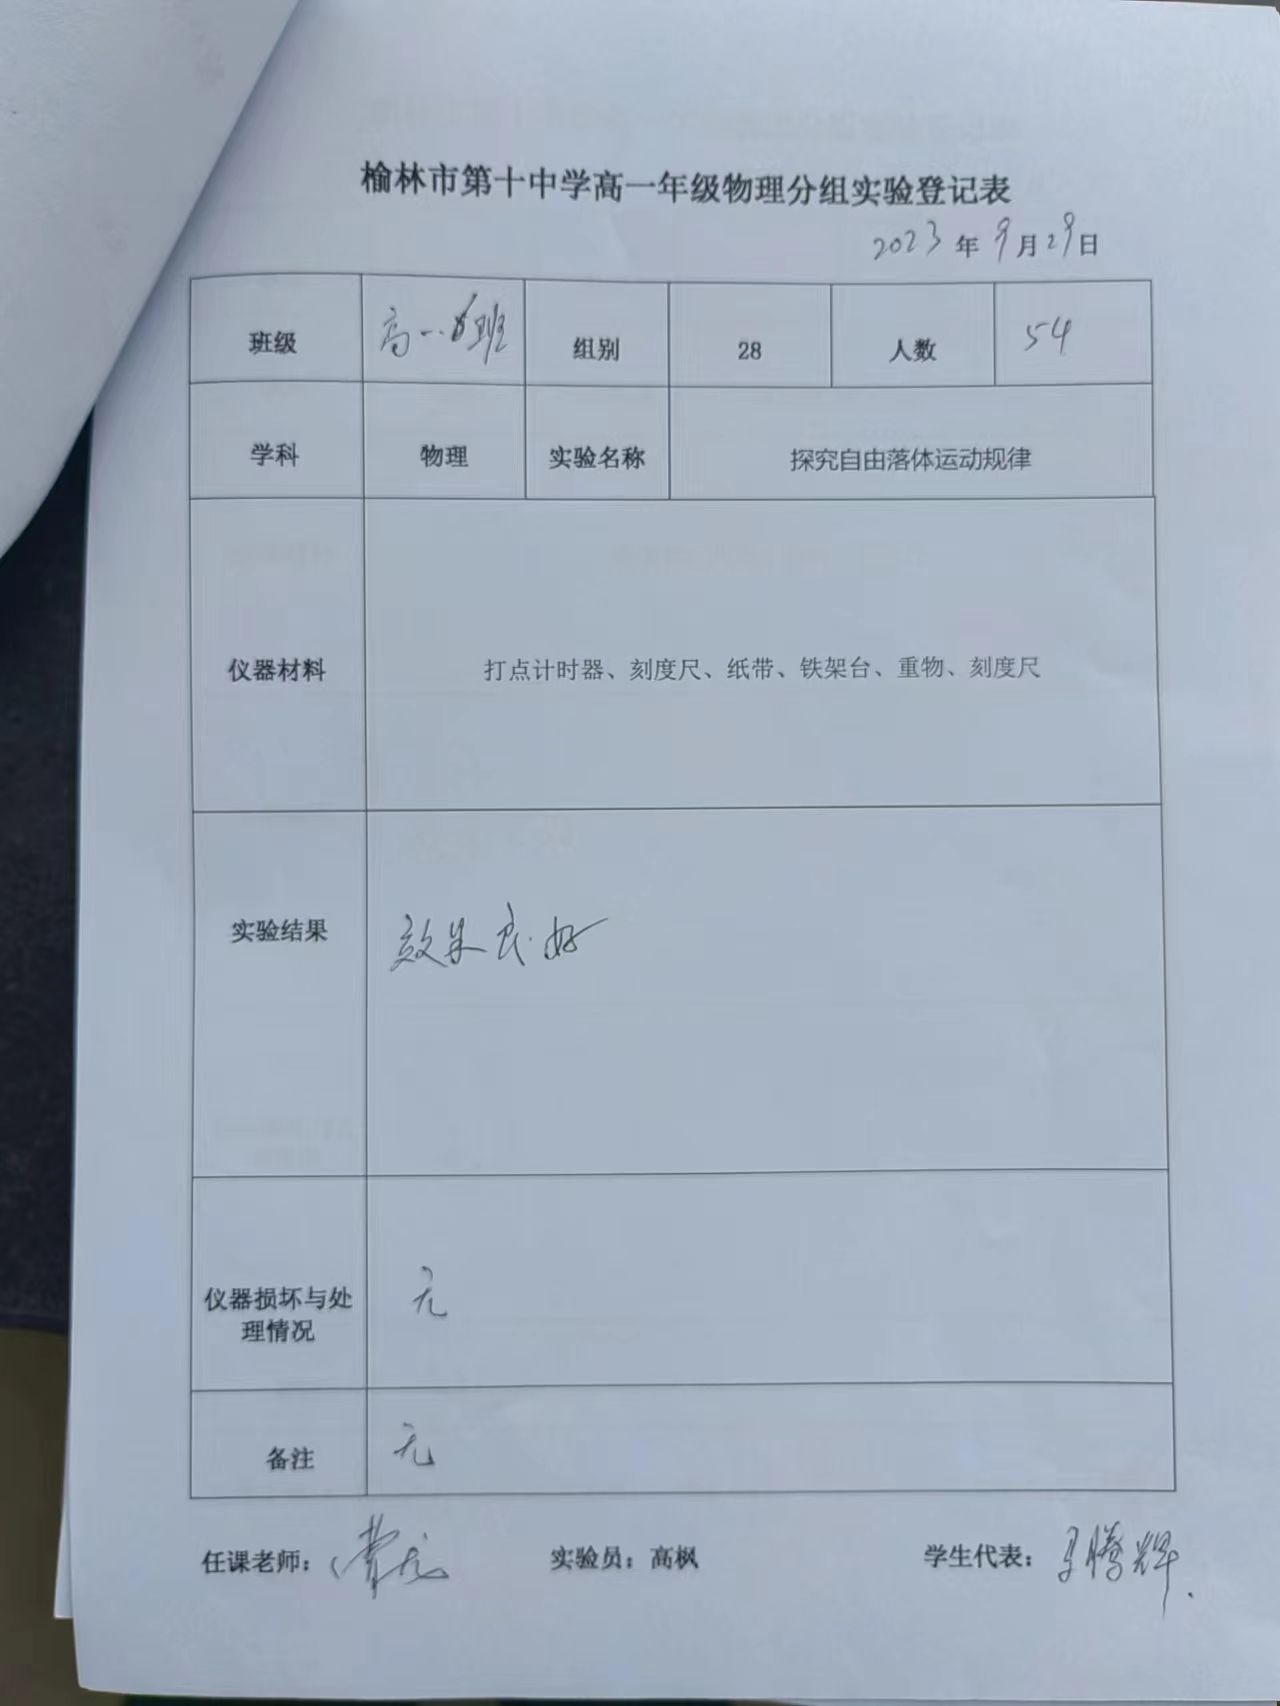 榆林市第十中学高一年级物理分组实验登记表
2023年9月29日
班级 高一 班 组别 28 人数 54
学科 物理 实验名称 探究自由落体运动规律
仪器材料 打点计时器、刻度尺、纸带、铁架台、重物、刻度尺
实验结果 效果良好
仪器损坏与处
理情况 无
备注 无
任课老师： 实验员：高枫 学生代表： 腾辉